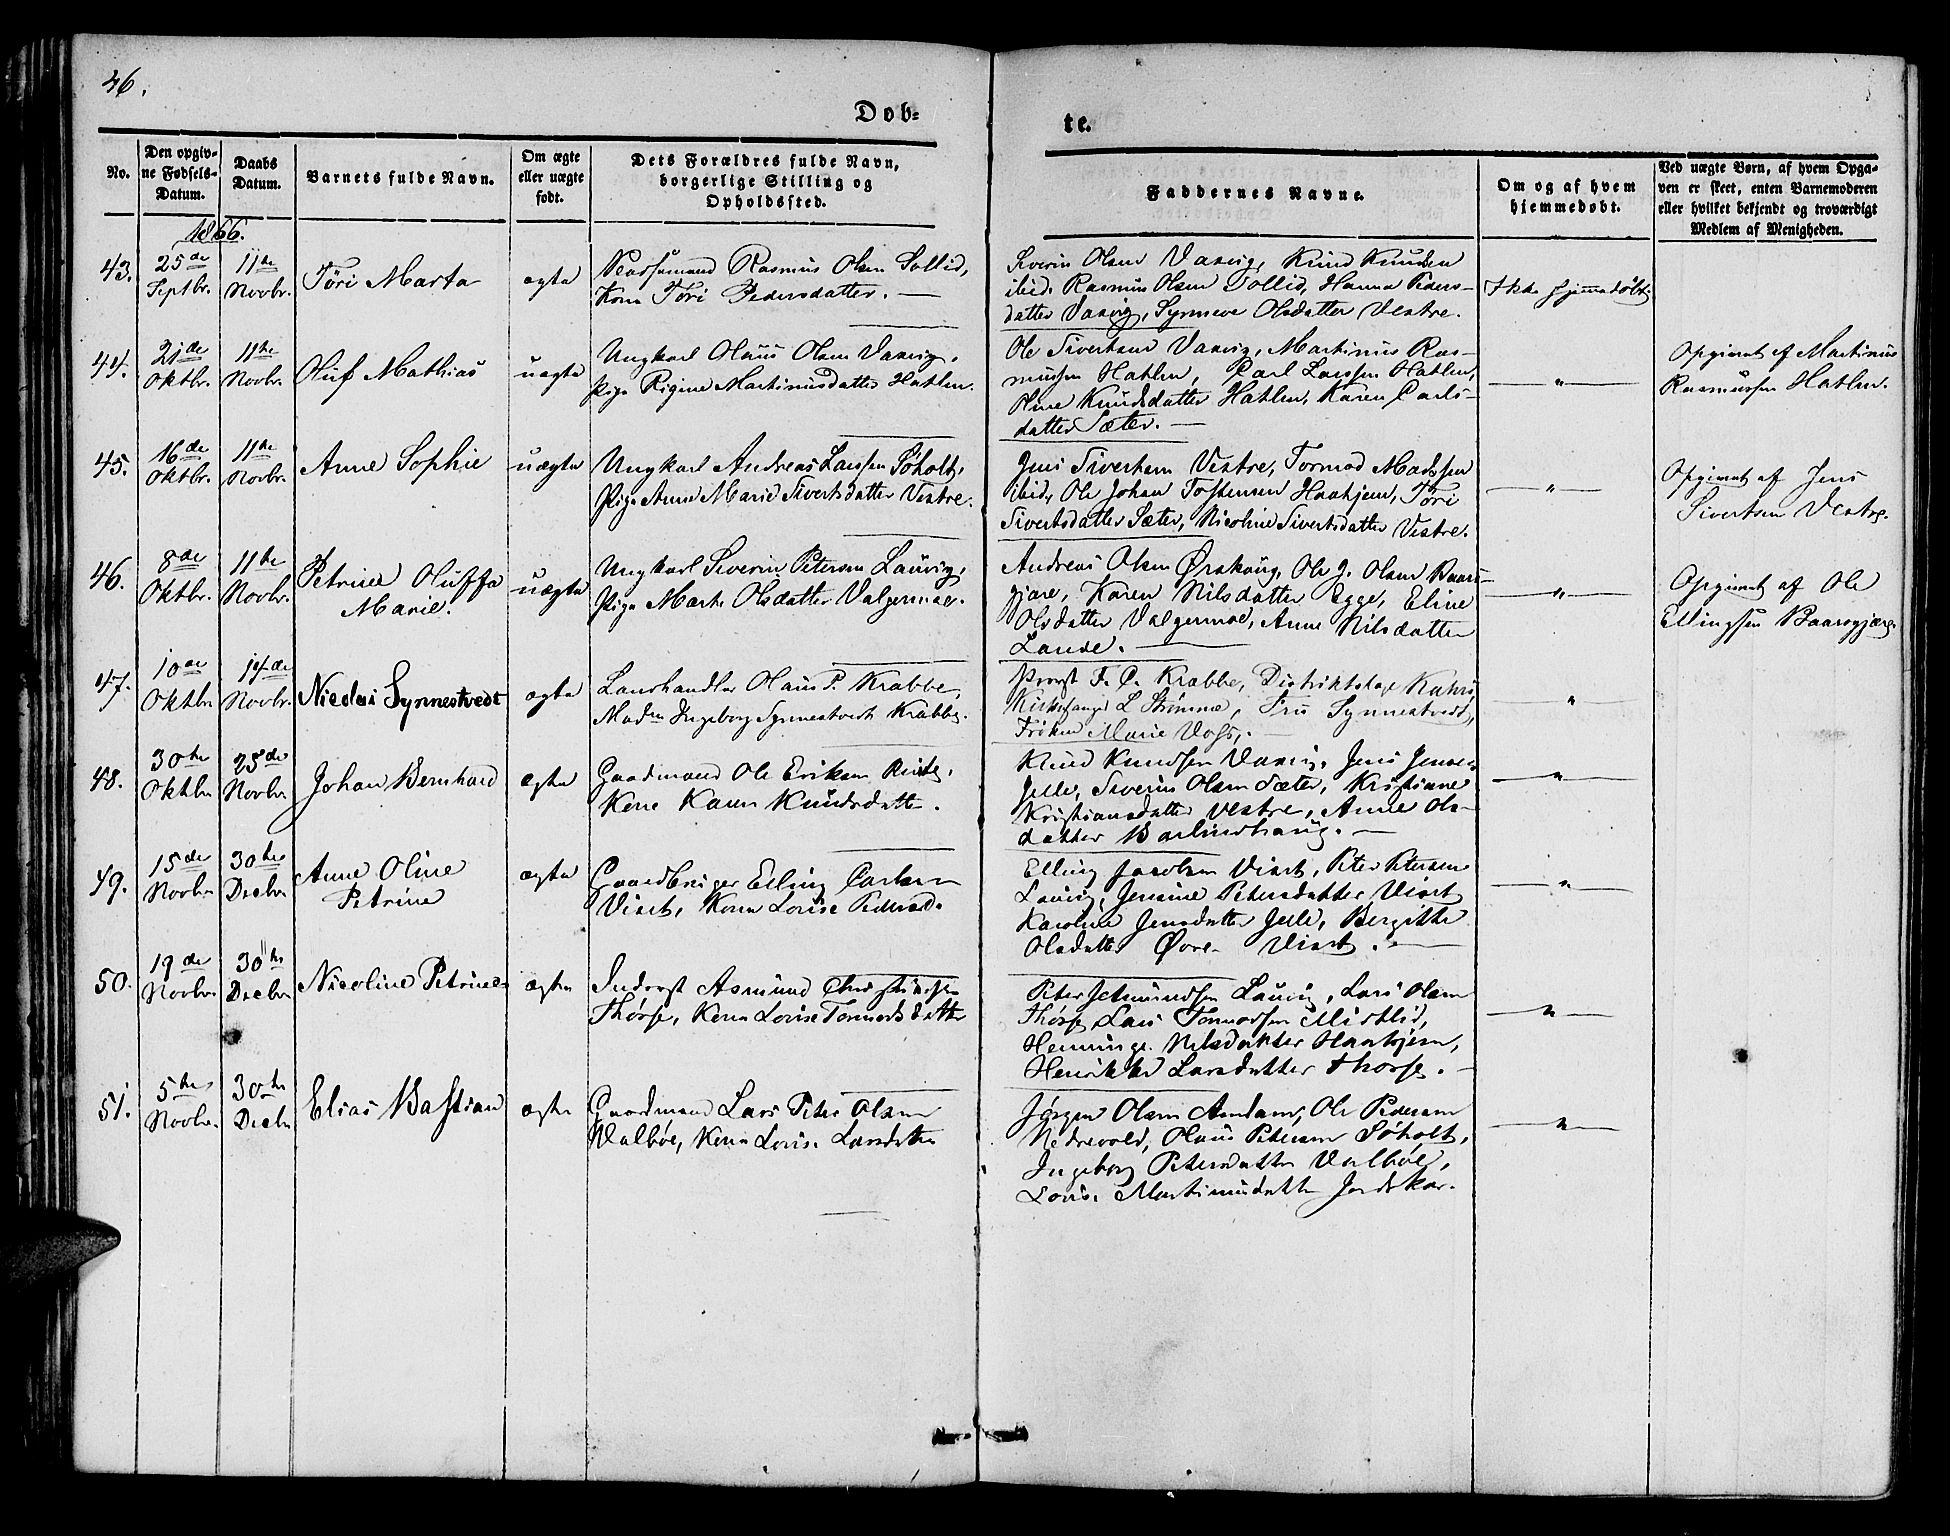 46.
Døb=
te.
No.
Den opgiv-
ne Fødsels-
Datum.
Daabs
Datum.
Barnets fulde Navn.
Om ægte
eller uægte
født.
Dets Forældres fulde Navn,
borgerlige Stilling og
Opholdssted.
Faddernes Navne.
Om og af hvem
hjemmedøbt.
Ved uægte Børn, af hvem Opga-
ven er skeet, enten Barnemoderen
eller hvilket bekjendt og troværdigt
Medlem af Menigheden.
1866.
43.
25de
Septbr.
11te
Novbr.
Töri Marta
ægte
Rasmus Olsen Sollid,
Kone Töri Pedersdatter. —
Siverin Olsen Vaxvig, Knud Knudsen
ibid. Rasmus Olsen Sollid, Hanna Peders-
datter Vaxvig, Synneve Olsdatter Vestre.
Ikke hjemmedøbt.
44.
21de
Oktbr.
11te
Novbr.
Oluf Mathias
uægte
Ungkarl Olaus Olsen Vaxvig,
Pige Rigine Martinusdatter Hatlen.
Ole Sivertsen Vaxvig, Martinus Ras-
mussen Hatlen, Carl Larssen Hatlen,
Oline Knudsdatter Hatlen, Karen Carls-
datter Sæter. —
— " —
Opgivet af Martinus
Rasmussen Hatlen.
45.
16de
Oktbr.
11te
Novbr.
Anne Sophie
uægte
Ungkarl Andreas Larssen Söholt,
Pige Anne Marie Sivertsdatter Vestre.
Jens Sivertsen Vestre, Tormod Madssen
ibid, Ole Johan Tostensen Haahjem, Töri
Sivertsdatter Sæter, Nicoline Sivertsdatter Vestre.
— " —
Opgivet af Jens
Sivertsen Vestre.
46.
8de
Oktbr.
11te
Novbr.
Petrine Oluffa
Marie.
uægte
Ungkarl Siverin Petersen Lauvig,
Pige Marte Olsdatter Valgermoe.
Andreas Olsen Ørskoug, Ole J. Olsen Baars-
gjære, Karen Nilsdatter Egge, Eline
Olsdatter Valgermoe, Anne Nilsdatter
Lande. —
— " —
Opgivet af Ole
Ellingsen Baarsgjære.
47.
10de
Oktbr
14de
Novbr.
Nicolai Synnestvedt
ægte
Landhandler Olaus P. Krabbe,
Madm Ingeborg Synnestvedt Krabbe.
Provst F. C. Krabbe, Distriktslæge Kahrs,
Kirkesanger L Strömme, Fru Synnestvedt,
Fröken Marie Voss. —
"
48.
30te
Oktbr
25de
Novbr
Johan Bernhard
ægte
Gaardmand Ole Eriksen
Kone Karen Knudsdatt.
Knud Knudsen Vaxvig, Jens Jensen
Jelle, Siverin Olsen Sæter, Kristiane
Kristiansdatter Vestre, Anne Ols-
datter —
— " —
49.
15de
Novbr
30te
Decbr
Anne Oline
Petrine
ægte
Gaardbruger Elling Carlsen
Viset, Kone Lovise Pedersd.
Elling Jacobsen Viset, Peter Petersen
Lauvig, Jensine Petersdatter Viset
Karoline Jensdatter Jelle, Bergitte
Olsdatter Øvre Viset. —
— " —
50.
19de
Novbr
30te
Decbr
Nicoline Petrine
ægte
Inderst Asmund Christiansen
Thorse, Kone Lovise Tormodsdatter
Peter Lauvig, Lars Olsen
Thorse Lars Tormodsen
Henninge Nilsdatter Haahjem,
Henrikke Larsdatter Thorse. —
— " —
51.
5te
Novbr.
30te
Decbr
Elias Bastian
ægte
Gaardmand Lars Peter Olsen
Valböe, Kone Lovise Larsdatter
Jørgen Olsen Amdam, Ole Pedersen
Nedrevold, Olaus Petersen Söholt,
Ingeborg Petersdatter Valböe,
Lovise Martinusdatter
— " —